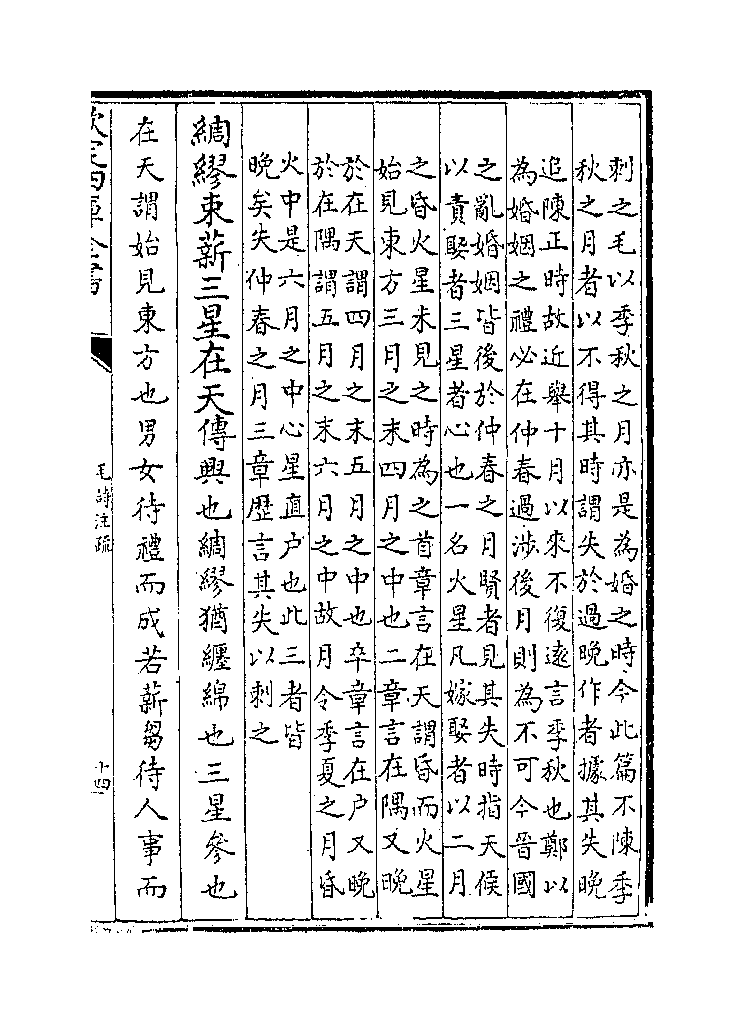 刺之毛以季秋之月亦是為婚之時今此篇不陳季
秋之月者以不得其時謂失於過晚作者據其失晚
追陳正時故近舉十月以來不復逺言季秋也鄭以
為婚姻之禮必在仲春過涉後月則為不可今晉國
之亂婚姻皆後於仲春之月賢者見其失時指天候
以責娶者三星者心也一名火星凡嫁娶者以二月
之昏火星未見之時為之首章言在天謂昏而火星
始見東方三月之末四月之中也二章言在隅又晚
於在天謂四月之末五月之中也卒章言在户又晚
於在隅謂五月之末六月之中故月令季夏之月昏
火中是六月之中心星直户也此三者皆
晚矣失仲春之月三章歴言其失以刺之
綢繆束薪三星在天傳興也綢繆猶纒綿也三星參也
在天謂始見東方也男女待禮而成若薪芻待人事而
欽定四庫全書
毛詩注疏
十四